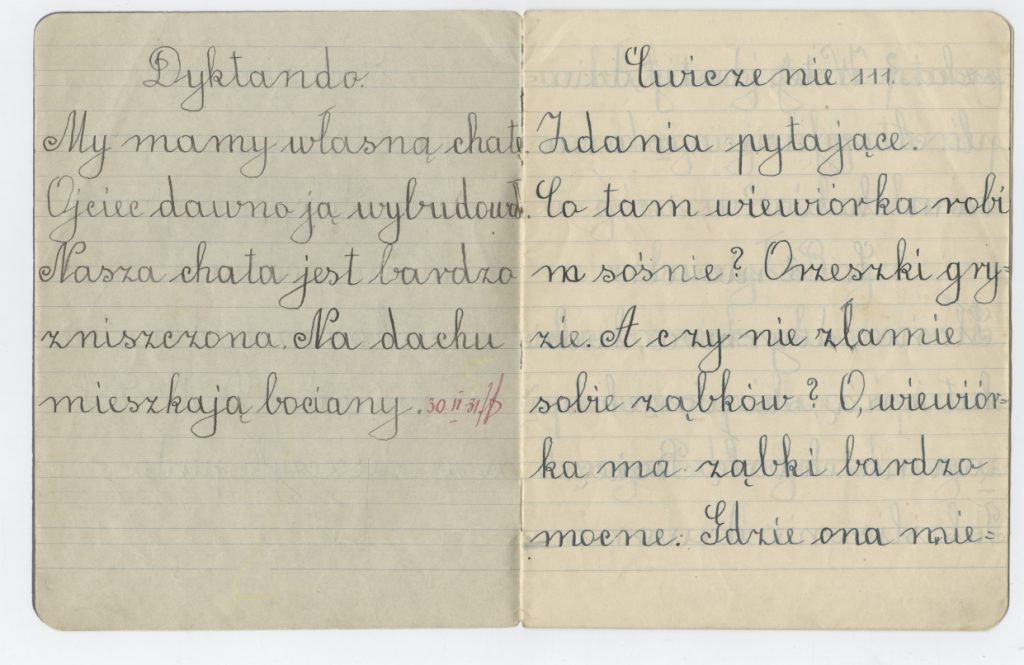 Dyktando.
My mamy własną chatę.
Ojciec dawno ją wybudował.
Nasza chata jest bardzo
zniszczona. Na dachu
mieszkają bociany.
Ćwiczenie III.
Zdania pytające.
Co tam wiewiórka robi
na sośnie? Orzeszki gry-
zie. A czy nie złamie
sobie ząbków? O, wiewiór-
ka ma ząbki bardzo
mocne. Gdzie ona mie=